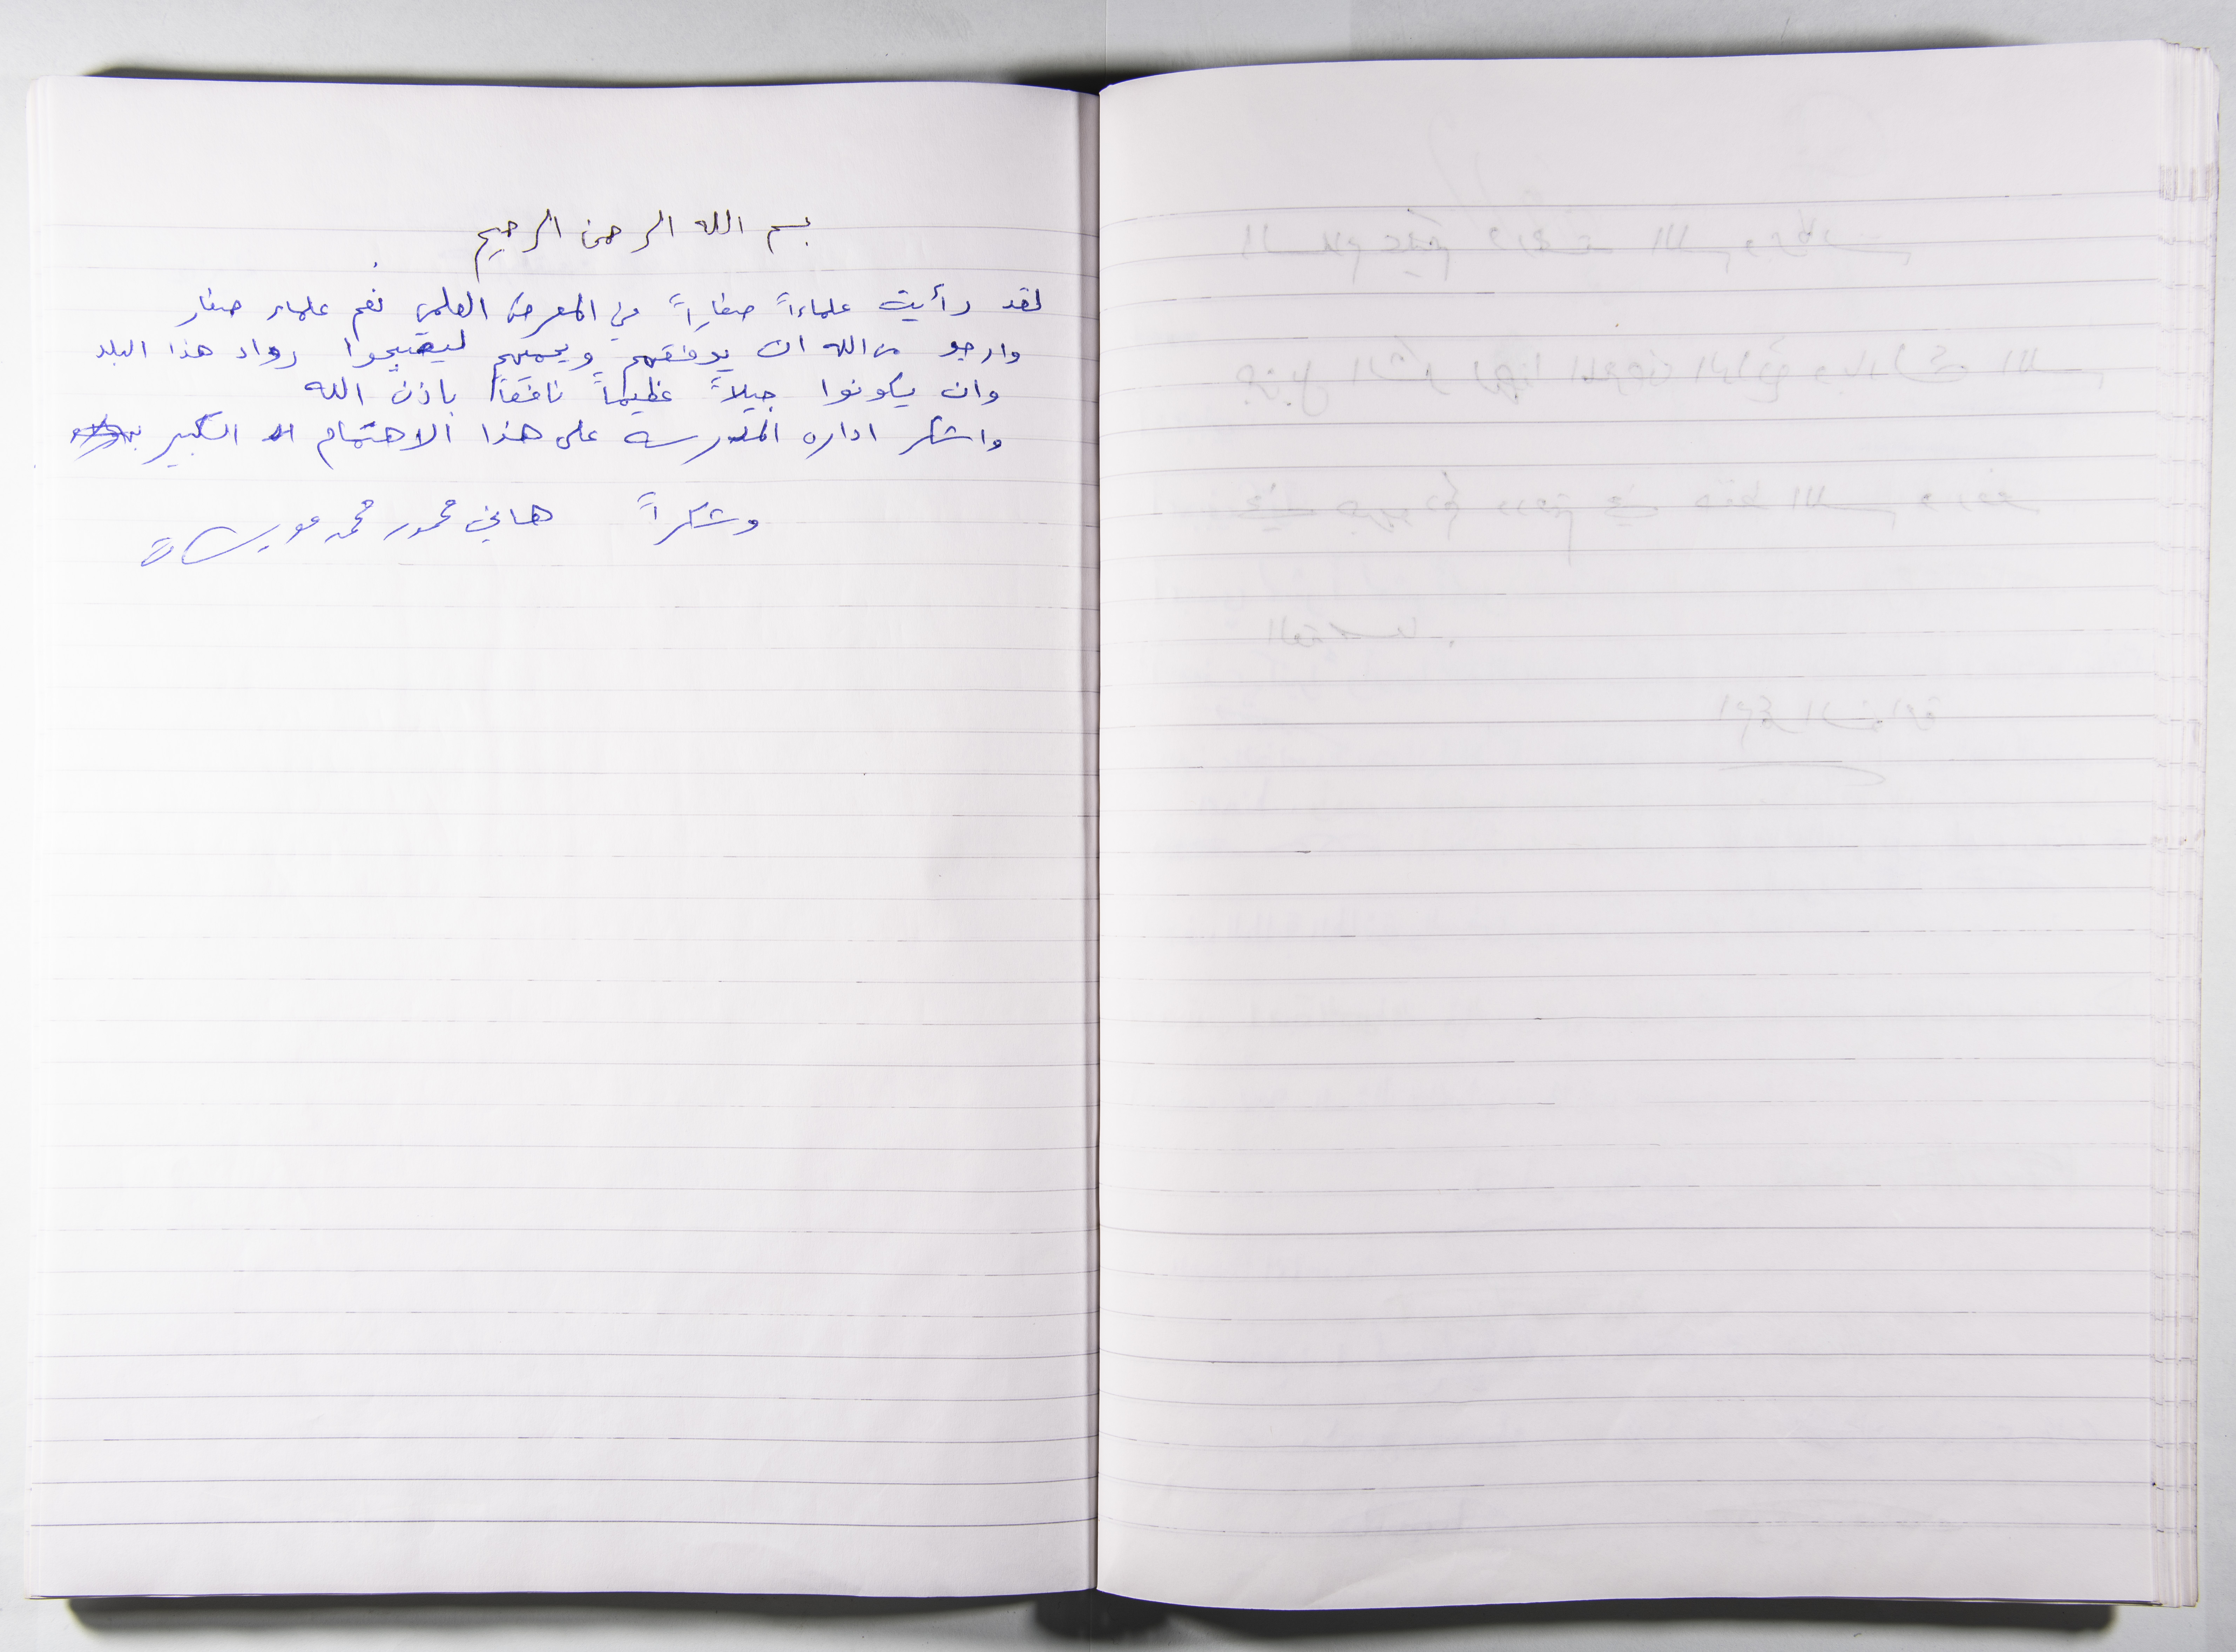 بسم الله الرحمن الرحيم
لقد رأيت علماءاً صغاراً في المعرض العلمي نعم علماء صغار
وارجو من الله ان يوفقهم ويحميهم ليصبحوا رواد هذا البلد
وان يكونوا جيلاً عظيماً نافعاً باذن الله
واشكر اداره المدرسه على هذا الاهتمام الكبير
وشكراً هاني محمود محمد